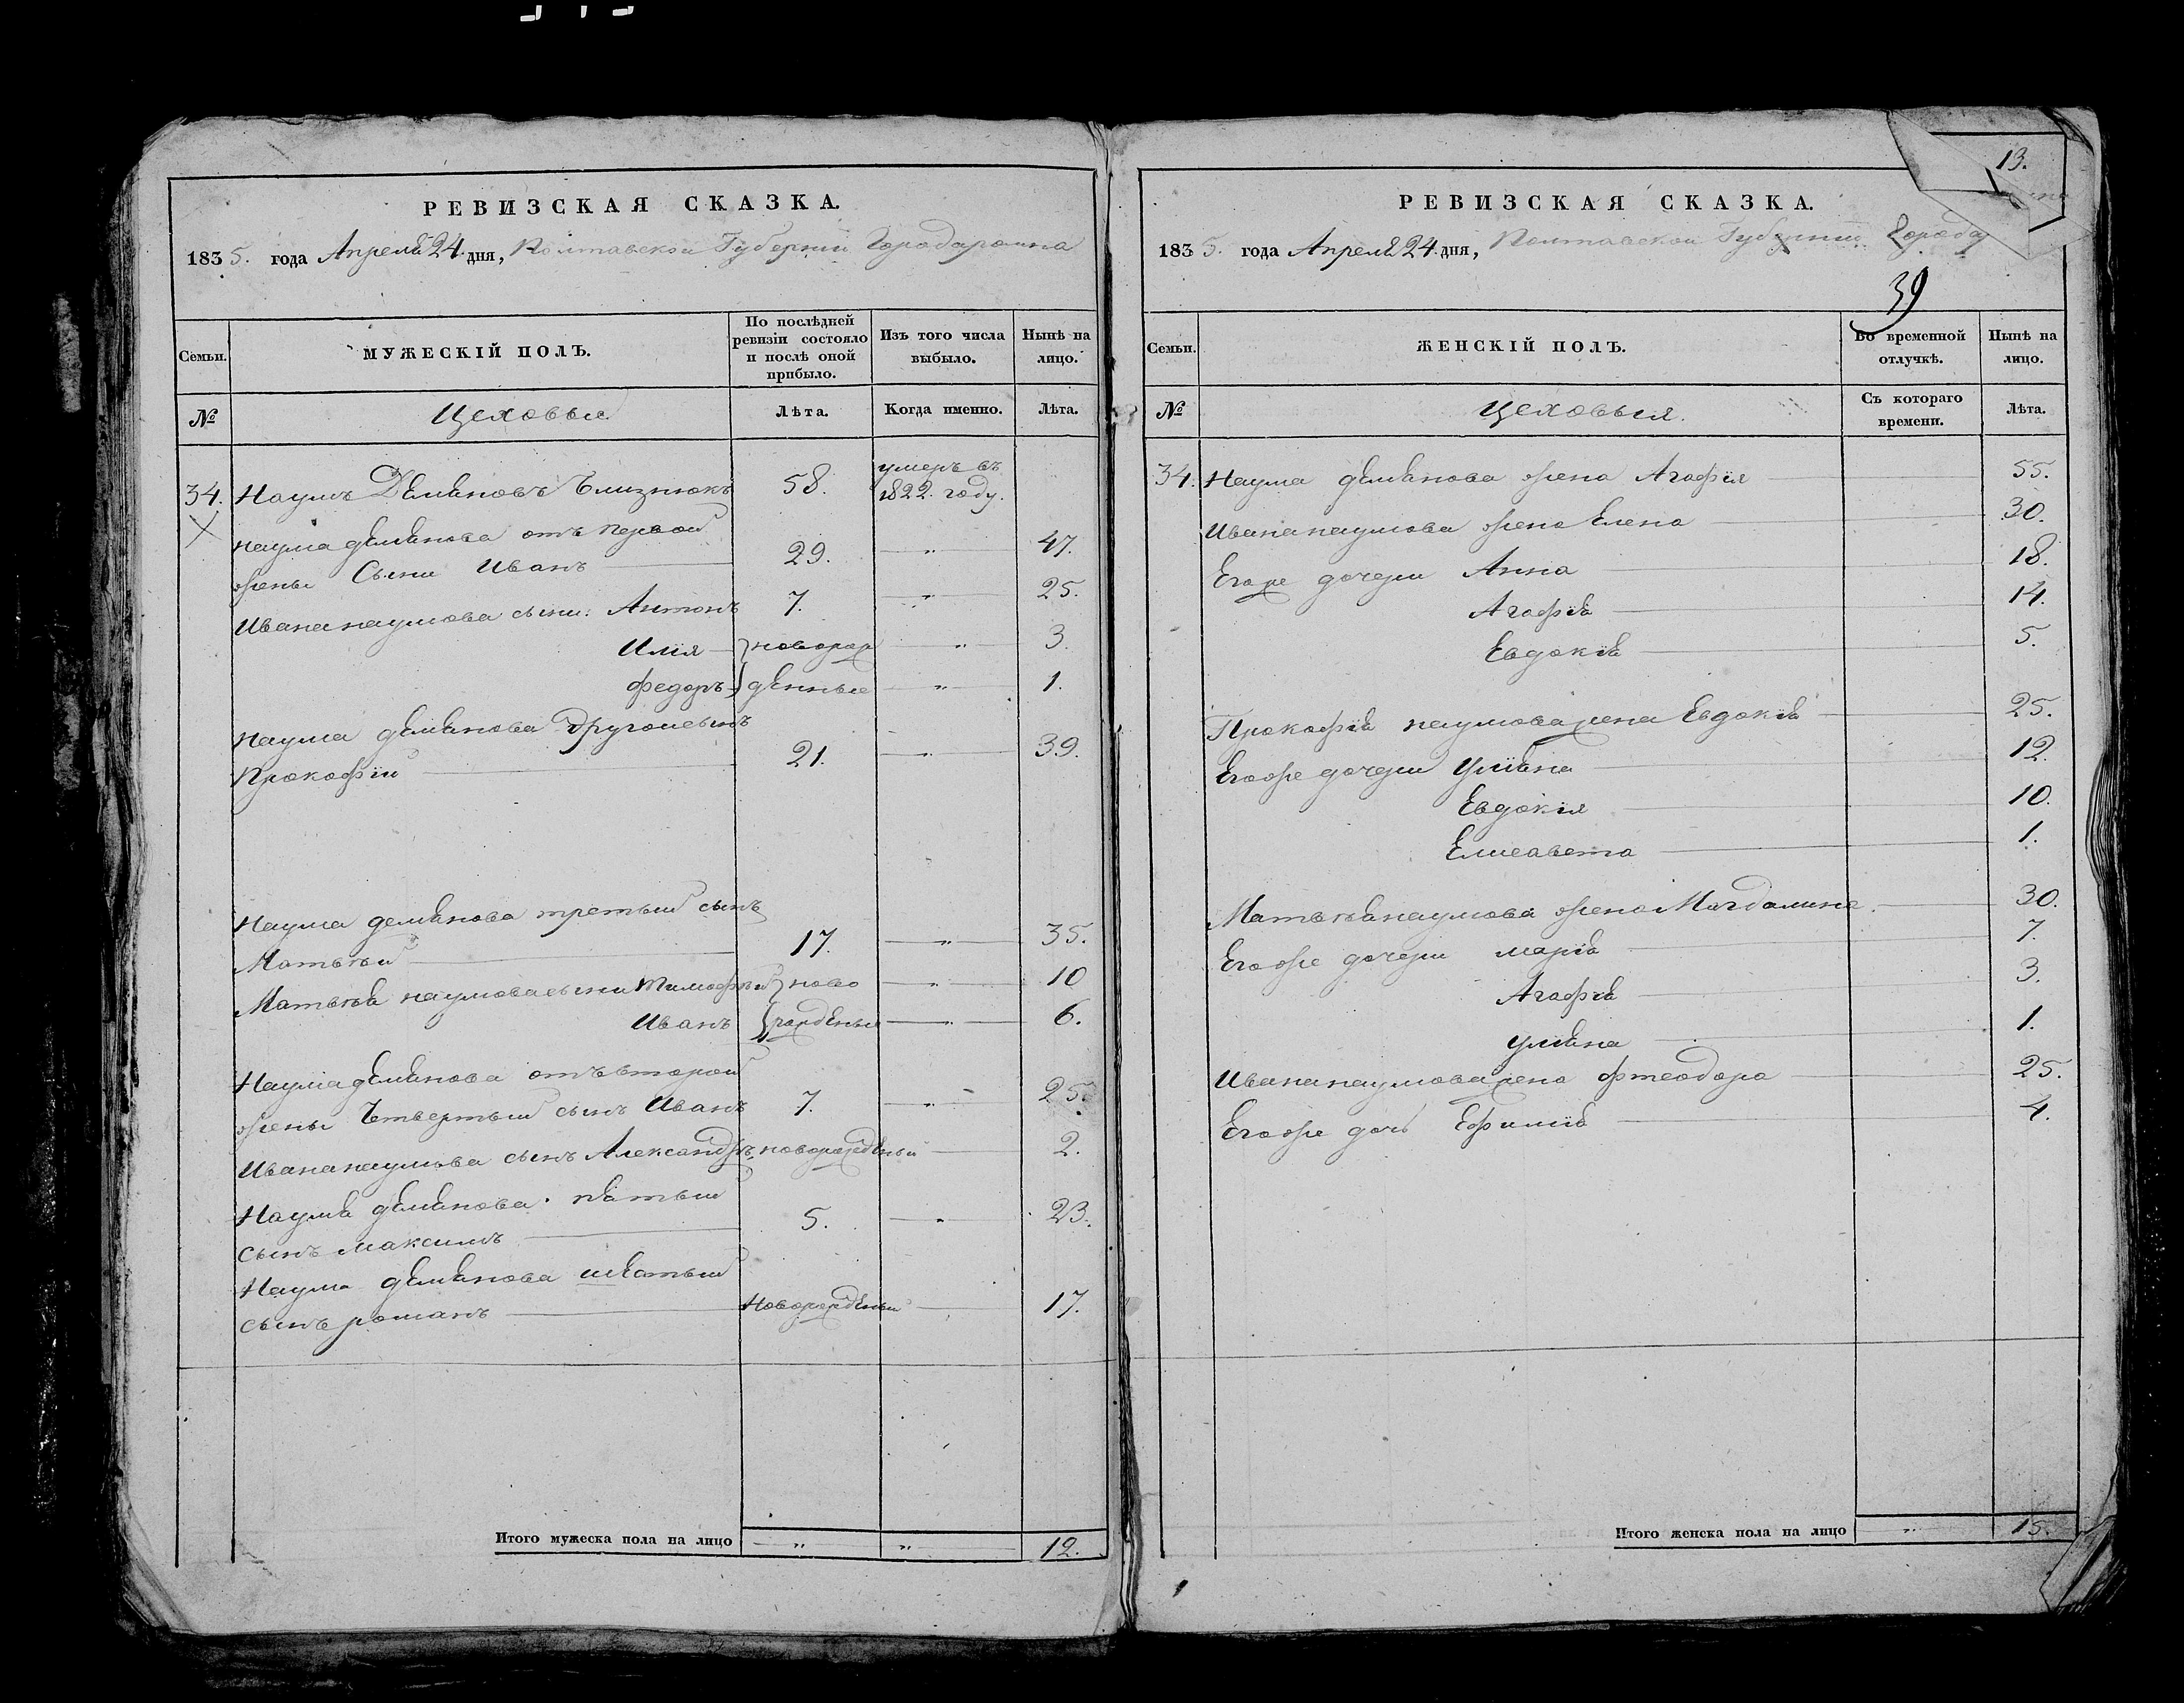 РЕВИЗСКАЯ СКАЗКА.
1835. года Апреля 24. дня, Полтавской Губернии Города ромна
Семьи.
МУЖЕСКІЙ ПОЛЪ.
По послѣдней
ревизіи состояло
и послѣ оной
прибыло.
Изъ того числа
выбыло.
Нынѣ на
лицо.
№
Цеховые
Лѣта.
Когда именно.
Лѣта.
34. Наумъ Демяновъ Близнюкъ 58. умеръ въ
1822. году.
Наума демянова отъ первой
жены Сыни Иванъ 29. " 47.
Ивана наумова сыни: Антонъ 7. " 25.
Илія новорож " 3.
федоръ денные " 1.
Наума демянова другой сынъ
Прокофій 21. " 39.
Наума демянова третый сынъ
Матвѣй 17. " 35.
Матвѣя наумова сыни Тимофѣй ново " 10
Иванъ рожденые " 6.
Наума демянова отъ второй
жены Четвертый сынъ Иванъ 7. " 25.
Ивана наумова сынъ Александръ новорожденый 2.
Наума демянова пятый
сынъ максимъ 5. " 23.
Наума демянова шестый
сынъ романъ Новорожденый 17.
Итого мужеска пола на лицо " " 12.
13.
РЕВИЗСКАЯ СКАЗКА.
1835. года Апреля 24. дня, Полтавской Губернии Города
39
Семьи.
ЖЕНСКІЙ ПОЛЪ.
Во временной
отлучкѣ.
Нынѣ на
лицо.
№
Цеховыя.
Съ котораго
времени.
Лѣта.
34. Наума демянова жена Агафія 55.
Ивана наумова жена Елена 30.
Егоже дочери Анна 18.
Агафія 14.
Евдокія 5.
Прокофія наумова жена Евдокія 25.
Егоже дочери Уліяна 12.
Евдокія 10.
Елисавета 1.
Матвѣя наумова жена Магдалина 30.
Егоже дочери марія 7.
Агафія 3.
Уліяна 1.
Ивана наумова жена фтеодора 25.
Егоже дочь Ефимія 4.
Итого женска пола на лицо " 15.